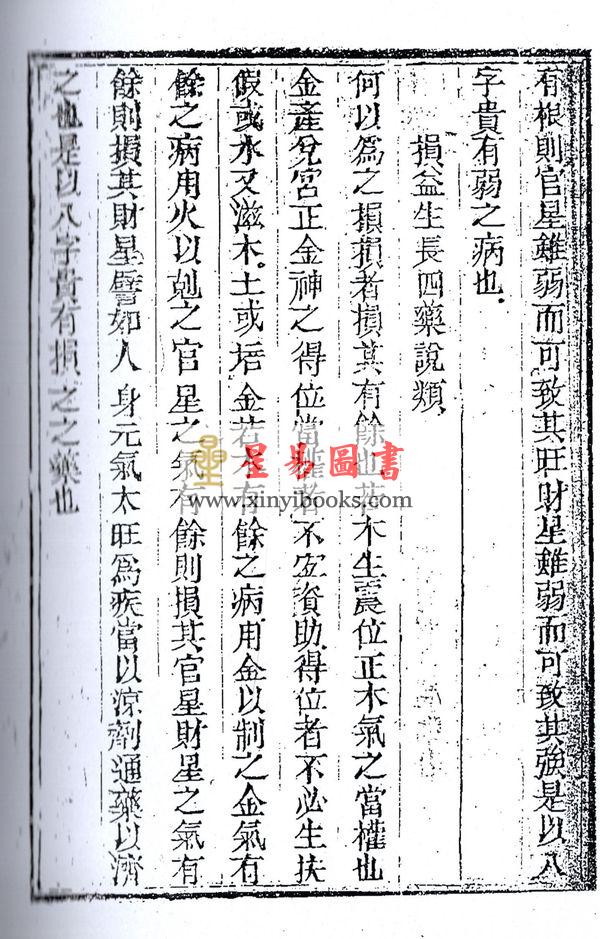 有根則官星雖弱而可致其旺財星雖弱而可致其強是以八
字貴有弱之病也
損益生長四藥說類
何以爲之損損者損其有餘也若木生震位正木氣之當權也
金產兌宮正金神之得位當權者不宜資助得位者不必生扶
假或水又滋木土或培金若木有餘之病用金以制之金氣有
餘之病用火以剋之官星之氣有餘則損其官星財星之氣有
餘則損其財星譬如人身元氣太旺爲疾當以涼劑通藥以濟
之也是以八字貴有損之之藥也
星易圖書
www.xinyibooks.com